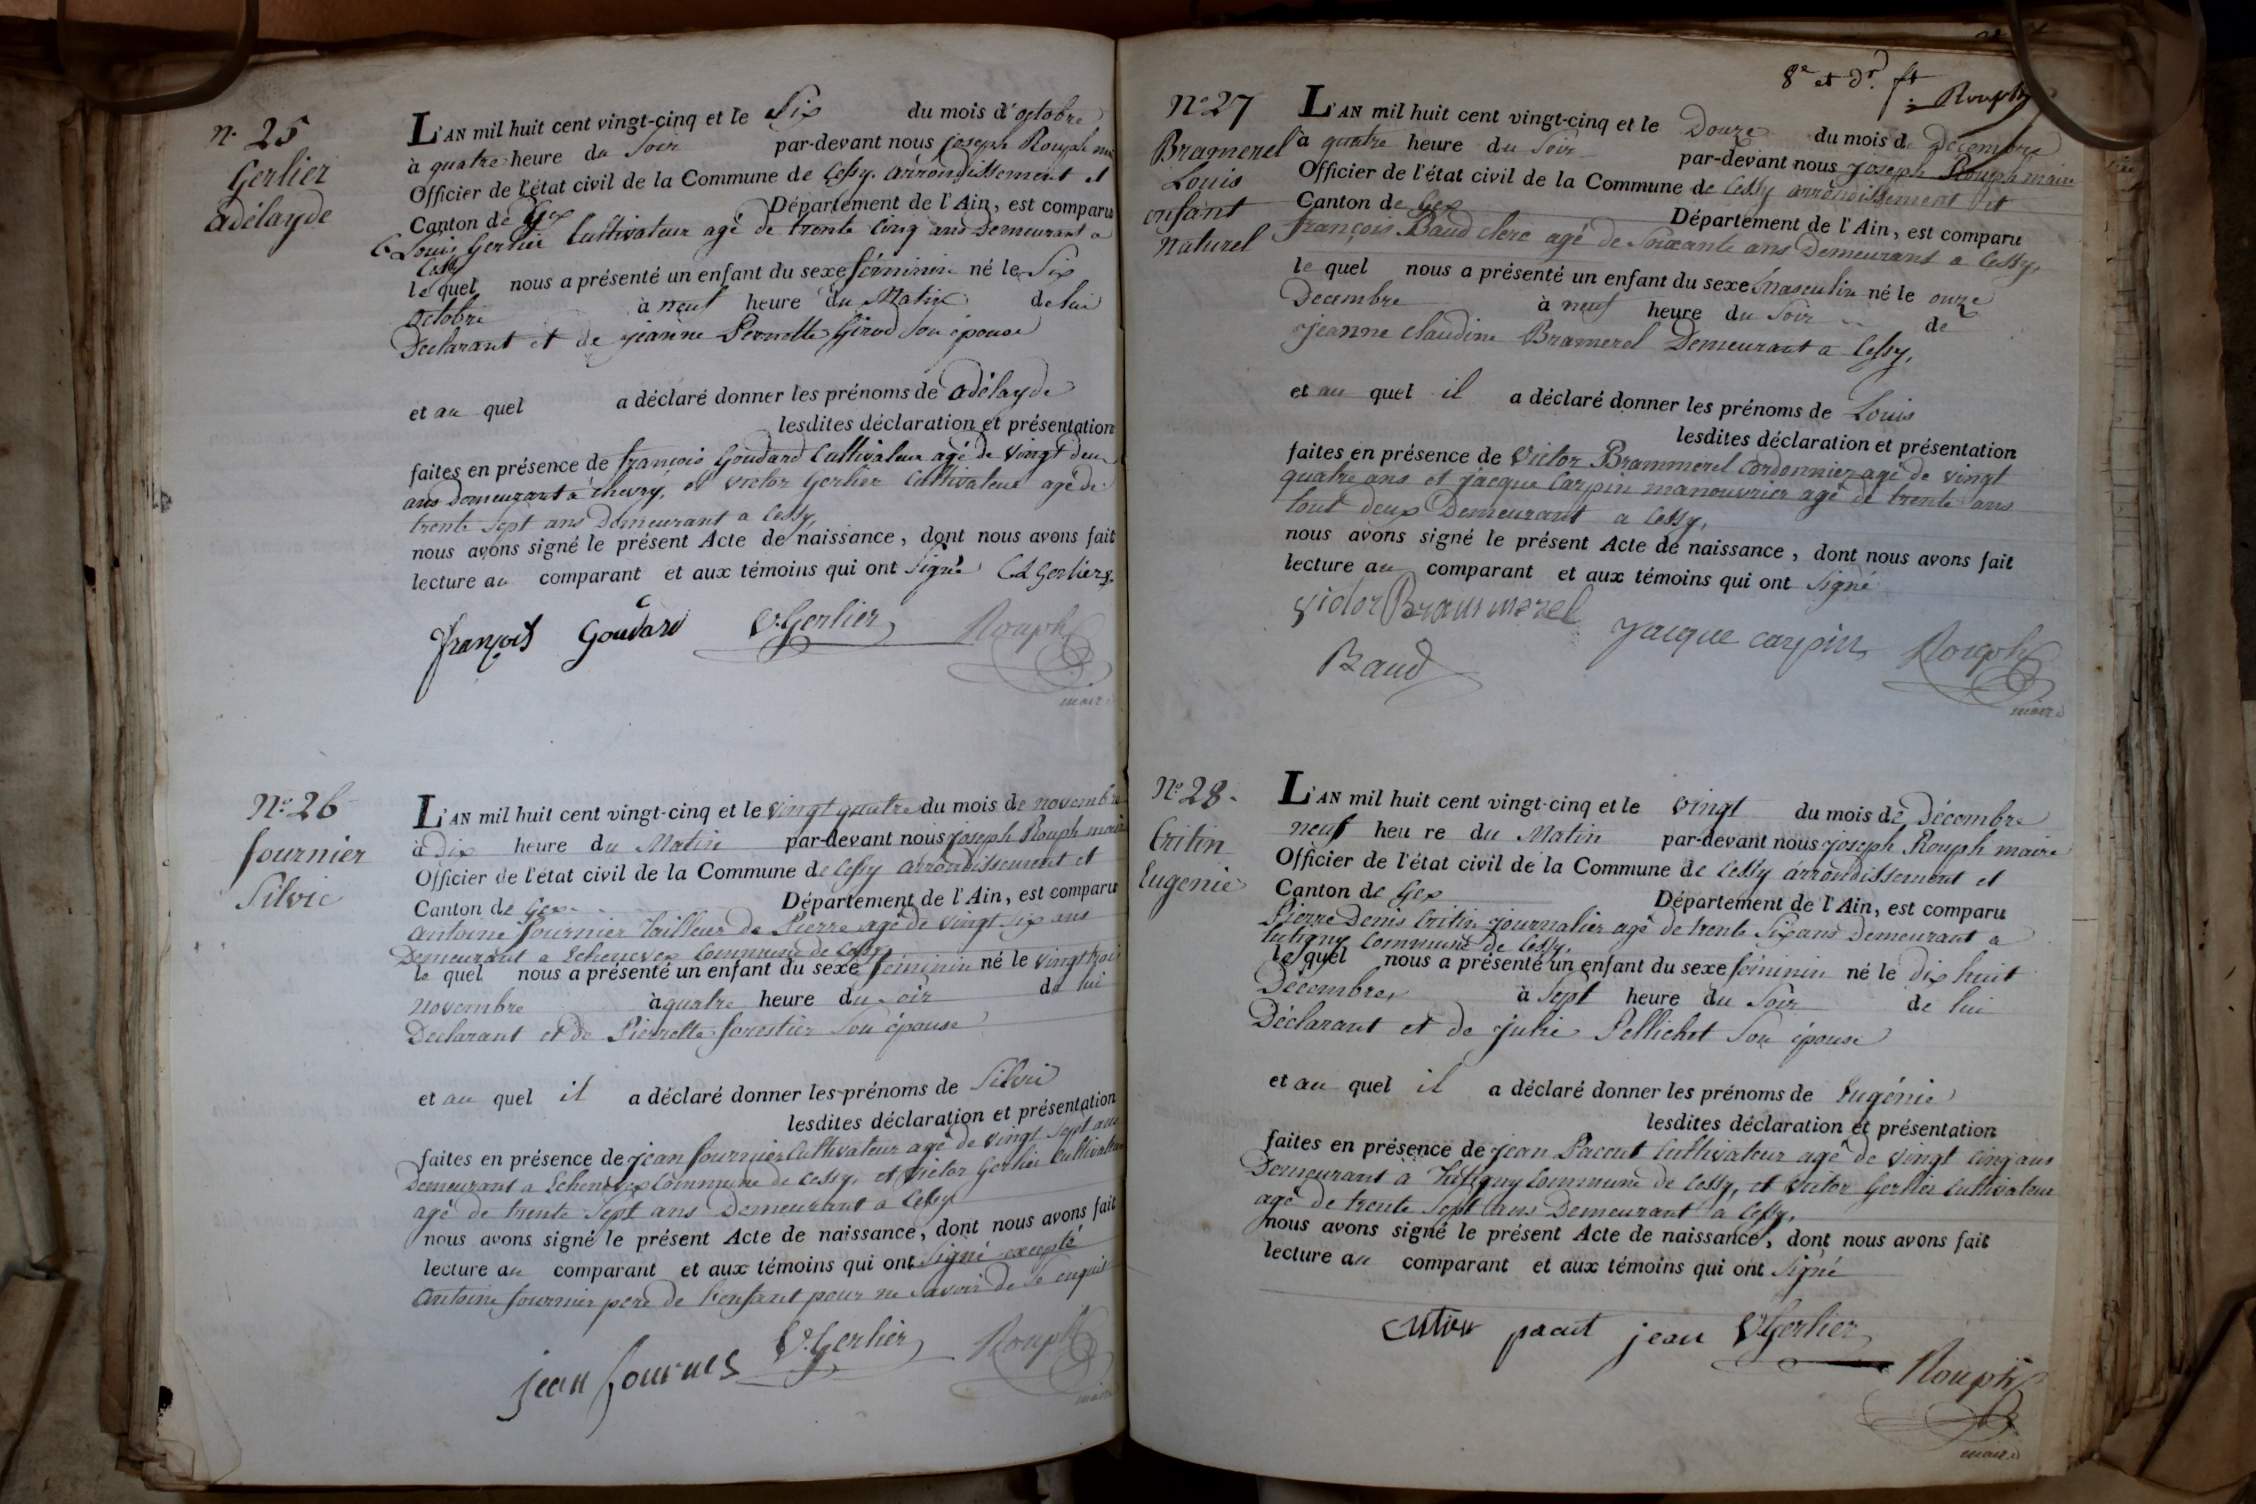 n. 25
Gerlier
adélayde
L'AN mil huit cent vingt-cinq et le Six du mois d'octobre
à quatre heure du Soir par-devant nous joseph Rouph
Officier de l'état civil de la Commune de Cessy. arrondissement et
Canton de Gex Département de l'Ain, est comparu
Louis Gerlier Cultivateur agé de trente Cinq ans Demeurant a
Cessy
le quel nous a présenté un enfant du sexe féminin né le Six
octobre à neuf heure du Matin de lui
Declarant et de jeanne Pernette Girod Son épouse
et au quel a déclaré donner les prénoms de adélayde
lesdites déclaration et présentation
faites en présence de françois Goudard Cultivateur agé de Vingt deux
ans Demeurant a Chevry, et Victor Gerlier Cultivateur agé de
trente Sept ans Demeurant a Cessy,
nous avons signé le présent Acte de naissance, dont nous avons fait
lecture au comparant et aux témoins qui ont Signé CL Gerlier
françois Goudard V. Gerlier Rouph
maire
N° 26
fournier
Silvie
L'AN mil huit cent vingt-cinq et le Vingt quatre du mois de novembre
à Dix heure du Matin par-devant nous joseph Rouph maire
Officier de l'état civil de la Commune de Cessy arrondissement et
Canton de Gex Département de l'Ain, est comparu
Antoine fournier tailleur de Pierre agé de vingt Six ans
Demeurant a Echenevex Commune de Cessy
le quel nous a présenté un enfant du sexe féminin né le vingt trois
novembre à quatre heure du soir de lui
Declarant et de Pierrette forestier Son épouse
et au quel il a déclaré donner les prénoms de Silvie
lesdites déclaration et présentation
faites en présence de jean fournier Cultivateur agé de vingt Sept ans
Demeurant a Echenevex Commune de Cessy, et Victor Gerlier Cultivateur
agé de trente Sept ans Demeurant a Cessy
nous avons signé le présent Acte de naissance, dont nous avons fait
lecture au comparant et aux témoins qui ont Signé excepté
Antoine fournier pere de l'enfant pour ne Savoir de ce enquis
jean fournes V. Gerlier Rouph
maire
8e et dr. ft
Rouph
N° 27
Bramerel
Louis
enfant
naturel
L'AN mil huit cent vingt-cinq et le Douze du mois de Décembre
à quatre heure du Soir par-devant nous joseph Rouph maire
Officier de l'état civil de la Commune de Cessy arrondissement et
Canton de Gex Département de l'Ain, est comparu
françois Baud clerc agé de Soixante ans Demeurant a Cessy,
le quel nous a présenté un enfant du sexe Masculin né le onze
Decembre à neuf heure du Soir de
jeanne Claudine Bramerel Demeurant a Cessy,
et au quel il a déclaré donner les prénoms de Louis
lesdites déclaration et présentation
faites en présence de Victor Brammerel Cordonnier agé de vingt
quatre ans et jacque Carpin manouvrier agé de trente ans
tout deux Demeurant a Cessy,
nous avons signé le présent Acte de naissance, dont nous avons fait
lecture au comparant et aux témoins qui ont Signé
Victor Brammerel
jacque carpin Rouph
Baud
maire
N° 28.
Critin
Eugenie
L'AN mil huit cent vingt-cinq et le vingt du mois de Décembre
neuf heu re du Matin par-devant nous joseph Rouph maire
Officier de l'état civil de la Commune de Cessy arrondissement et
Canton de Gex Département de l'Ain, est comparu
Pierre Denis Critin journalier agé de trente Six ans Demeurant a
Tutigny Commune de Cessy.
le quel nous a présenté un enfant du sexe féminin né le dix huit
Décembre, à Sept heure du Soir de lui
Déclarant et de julie Pellichet Son épouse
et au quel il a déclaré donner les prénoms de Eugénie
lesdites déclaration et présentation
faites en présence de jean Pacout Cultivateur agé de vingt Cinq ans
Demeurant a Tutigny Commune de Cessy, et Victor Gerlier Cultivateur
agé de trente Sept ans Demeurant a Cessy,
nous avons signé le présent Acte de naissance, dont nous avons fait
lecture au comparant et aux témoins qui ont Signé
pacut jean V Gerlier
Rouph
maire